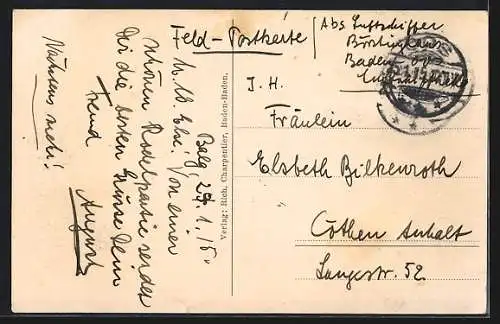 Feld-Postkarte
Abs Luftschiffer
Baden-Oos
J. H.
Fräulein
Elsbeth Bilkenroth
Cöthen Anhalt
Langestr. 52
Verlag: Rich. Charpentier, Baden-Baden.
29.1.15
M. lb. Else! Von einer
schönen Rodelpartie sendet
Dir die besten Grüsse Dein
Freund
August
Nächstens mehr!